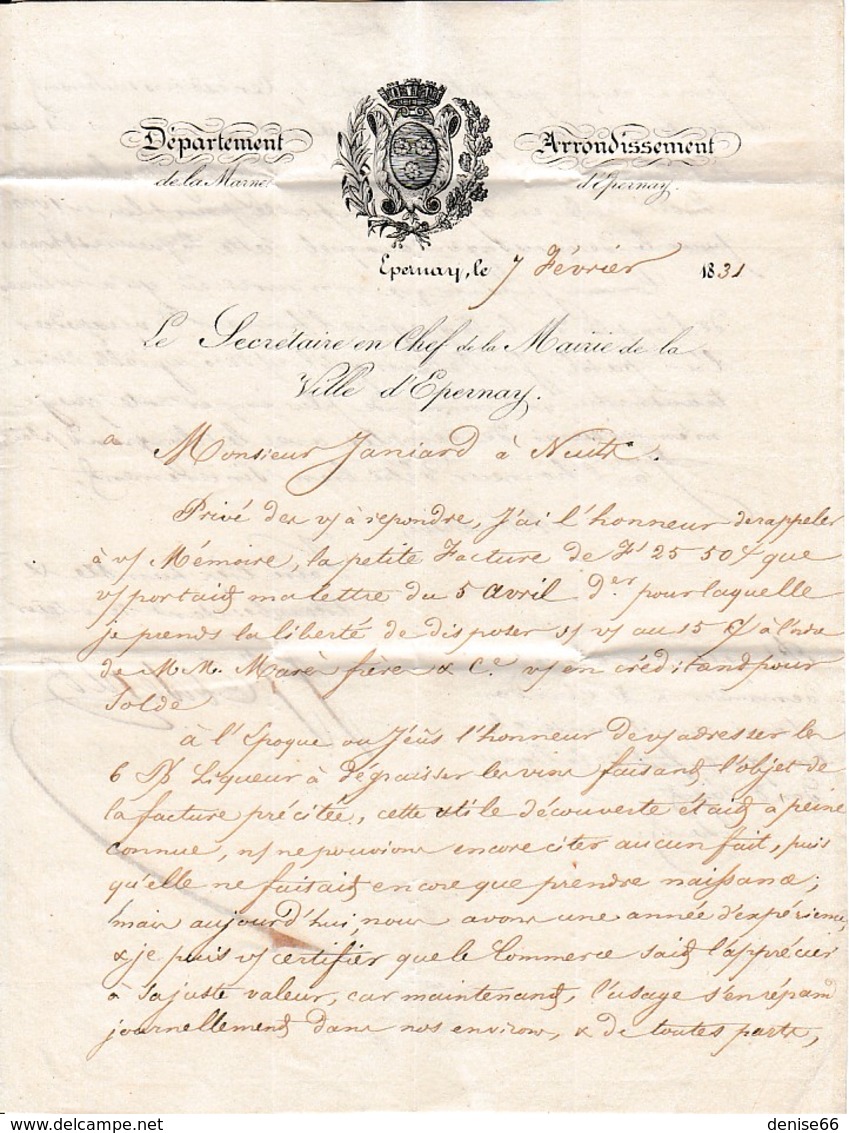 Département
de la Marne
Arrondissement
d'Epernay.
Epernay, le 7 Février 1831
Le Secrétaire en Chef de la Mairie de la
Ville d'Epernay.
a Monsieur Janiard à Nuits.
Privé de vs à repondre, J'ai l'honneur de rappeler
à vs Mémoire, la petite Facture de Fs 25 50 que
vs portait ma lettre du 5 avril der pour laquelle
je prends la liberté de disposer s/ vs au 15 à l'
de M M. Maré frère & Ce vs en créditant pour
Solde
à l'Epoque ou J'eûs l'honneur de vs adresser les
6 Liqueur à dégraisser les vins faisant l'objet de
la facture précitée, cette utile découverte était à peine
connue, ns ne pouvions encore citer aucun fait, puis
qu'elle ne faisait encore que prendre naissance;
mais aujourd'hui, nous avons une année d'expérience,
& je puis vs certifier que le Commerce sait l'apprécier
à sa juste valeur, car maintenant, l'usage s'en répand
journellement dans nos environs, & de toutes parts,
delcampe.net
denise66